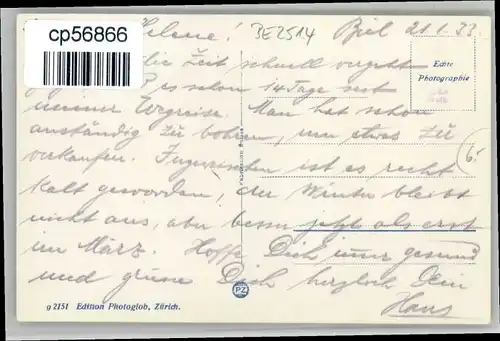 cp56866
Helene! BE2514 Biel 21.1.33.
die Zeit schnell vergeht
Echte
Photographie
es schon 14 Tage seit
meiner Wegreise. Man hat schon
anständig zu bohren, um etwas zu
verkaufen. Inzwischen ist es recht
6.-
kalt geworden, der Winter bleibt
nicht aus, aber besser jetzt als erst
im März. Hoffe Dich immer gesund
und grüsse Dich herzlich Dein
Hans
PZ
g 2151 Edition Photoglob, Zürich.